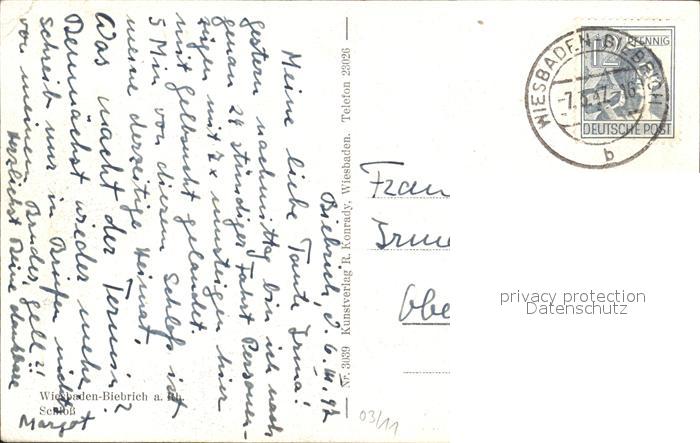 Biebrich, d. 6.
Meine liebe Tante Irma!
Gestern nachmittag bin ich nach
genau 24 stündiger Fahrt Personen-
zügen mit 7 x umsteigen hier
mit gelandet.
5 Min von diesem Schloß ist
meine derzeitige Heimat.
Was macht der Termin?
Demnächst wieder mehr.
schreib nur in Briefen nichts
von meinem Bruder, gell!!
Herzlichst Deine dankbare
Margot
Wiesbaden-Biebrich a. Rh.
Schloß
Nr. 3039 Kunstverlag R. Konrady, Wiesbaden. Telefon 23026
03/11
Frau
Irm
Obe
WIESBADEN-BIEBRICH
b
12 PFENNIG
DEUTSCHE POST
privacy protection
Datenschutz